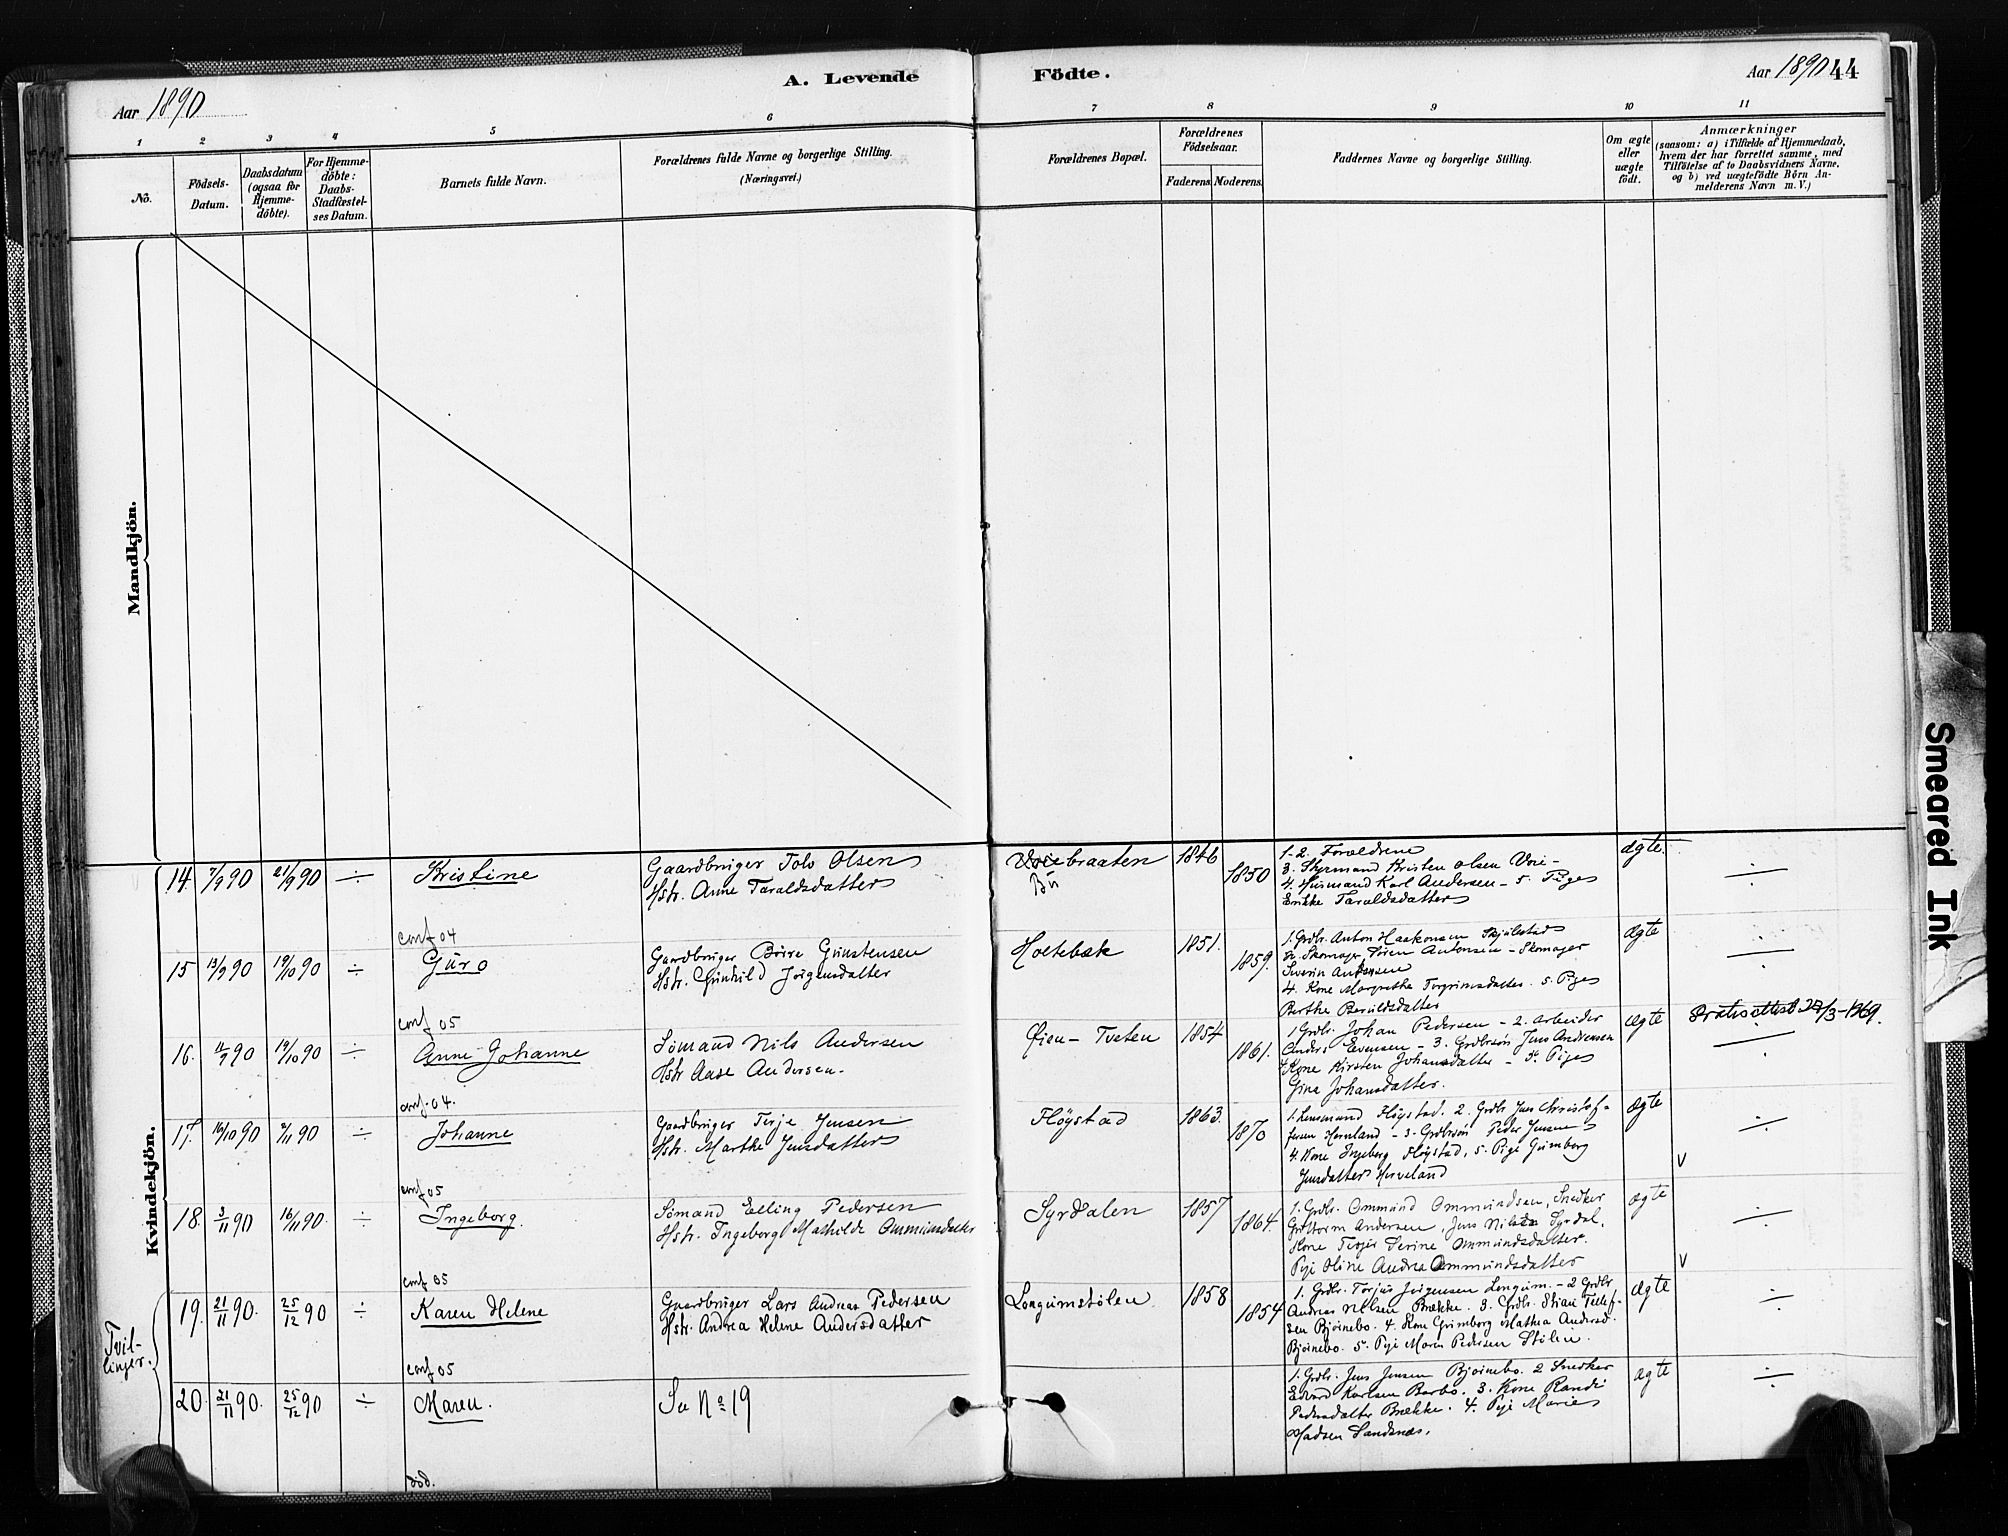 A. Levende Födte.
Aar 1890
Aar 1890 44
1 2 3 4 5 6 7 8 9 10 11
No.
Födsels-Datum.
Daabsdatum (ogsaa for Hjemme-döbte).
For Hjemme-döbte: Daabs-Stadfæstel-ses Datum.
Barnets fulde Navn.
Forældrenes fulde Navne og borgerlige Stilling.
(Næringsvei.)
Forældrenes Bopæl.
Forældrenes Födselsaar.
Faderens. Moderens.
Faddernes Navne og borgerlige Stilling.
Om ægte eller uægte födt.
Anmærkninger
(saasom: a) i Tilfælde af Hjemmedaab,
hvem der har forrettet samme, med
Tilföielse af to Daabsvidners Navne.
og b) ved uægtefödte Börn An-
melderens Navn m. V.)
Mandkjön.
Kvindekjön.
14. 7/9 90 21/9 90 ÷ Kristine
Gaardbruger Tolv Olsen
Hstr. Anne Taraldsdatter
Voiebraaten
1846 1850
1-2. Forældrene
3. Styrmand Kristen Olsen Voie-
4. Husmand Karl Andersen - 5. Pige
Taraldsdatter
ægte. ÷
conf 04
15 13/9 90 19/10 90 ÷ Guro
Gaardbruger Börre Gunstensen
Hstr. Gunhild Jörgensdatter
Holtebæk
1851. 1859.
1. Grdbr. Anton Haakonsen Skjulestad
2. Skomager Sören Antonsen - Skomager
Severin
4. Kone Margrethe Torgrimsdatter. 5. Pige
Berthe
ægte ÷
conf 05
16. 90 19/10 90 ÷ Anne Johanne
Sömand Nils Andersen
Hstr Aase Andersen.
Öien - Tveten
1854 1861.
1. Grdbr. Johan Pedersen - 2. Arbeider
Anders Evensen - 3. Grdbrsön Jens Andreassen
4. Kone Kirsten Johansdatter - 5. Pige
Gina Johansdatter.
ægte ÷
conf. 04.
17. 16/10 90 90 ÷ Johanne
Gaardbruger Terje Jensen
Hstr. Marthe Jensdatter
Flöystad
1863. 1870
1. Flöystad. 2. Grdbr Jens Christof-
fersen - 3. Grdbrsön Peder Jensen
4. Kone Ingeborg Flöystad, 5. Pige Gunborg
Jensdatter
ægte ÷
V
conf 05
18. 3/11 90 16/11 90. ÷ Ingeborg.
Sömand Elling Pedersen
Hstr. Ingeborg Mathilde Ommundsdatter
Syrdalen
1857 1864.
1. Grdbr. Ommund Ommundsen, Snedker
Andersen, Jens Syrdal.
Kone Serine Ommundsdatter.
Pige Oline Andrea Ommundsdatter
ægte ÷
V
conf 05
Tvil-
linger.
19. 21/11 90. 25/12 90 ÷ Karen Helene
Gaardbruger Lars Andreas Pedersen
Hstr. Andrea Helene Andersdatter
Longumstölen
1858 1854
1. Grdbr. Torjus Jörgensen Longum. - 2 Grdbr
Andreas Nilsen Brække. 3. Grdbr. Stian Tellef-
sen Bjørnebo. 4. Kone Gunborg Mathea Andersd.
Bjørnebo. 5. Pige Maren Pedersen Stölen.
ægte ÷
conf 05
20. 21/11 90. 25/12 90 ÷ Maren.
Se No 19
1. Grdbr. Jens Jensen Bjørnebo. 2. Snedker
Edvard Karlsen Barbo. 3. Kone Randi
Pedersdatter Brække. 4. Pige Marie
Madsen Sandsnæs.
ægte ÷
död.
Smeared Ink